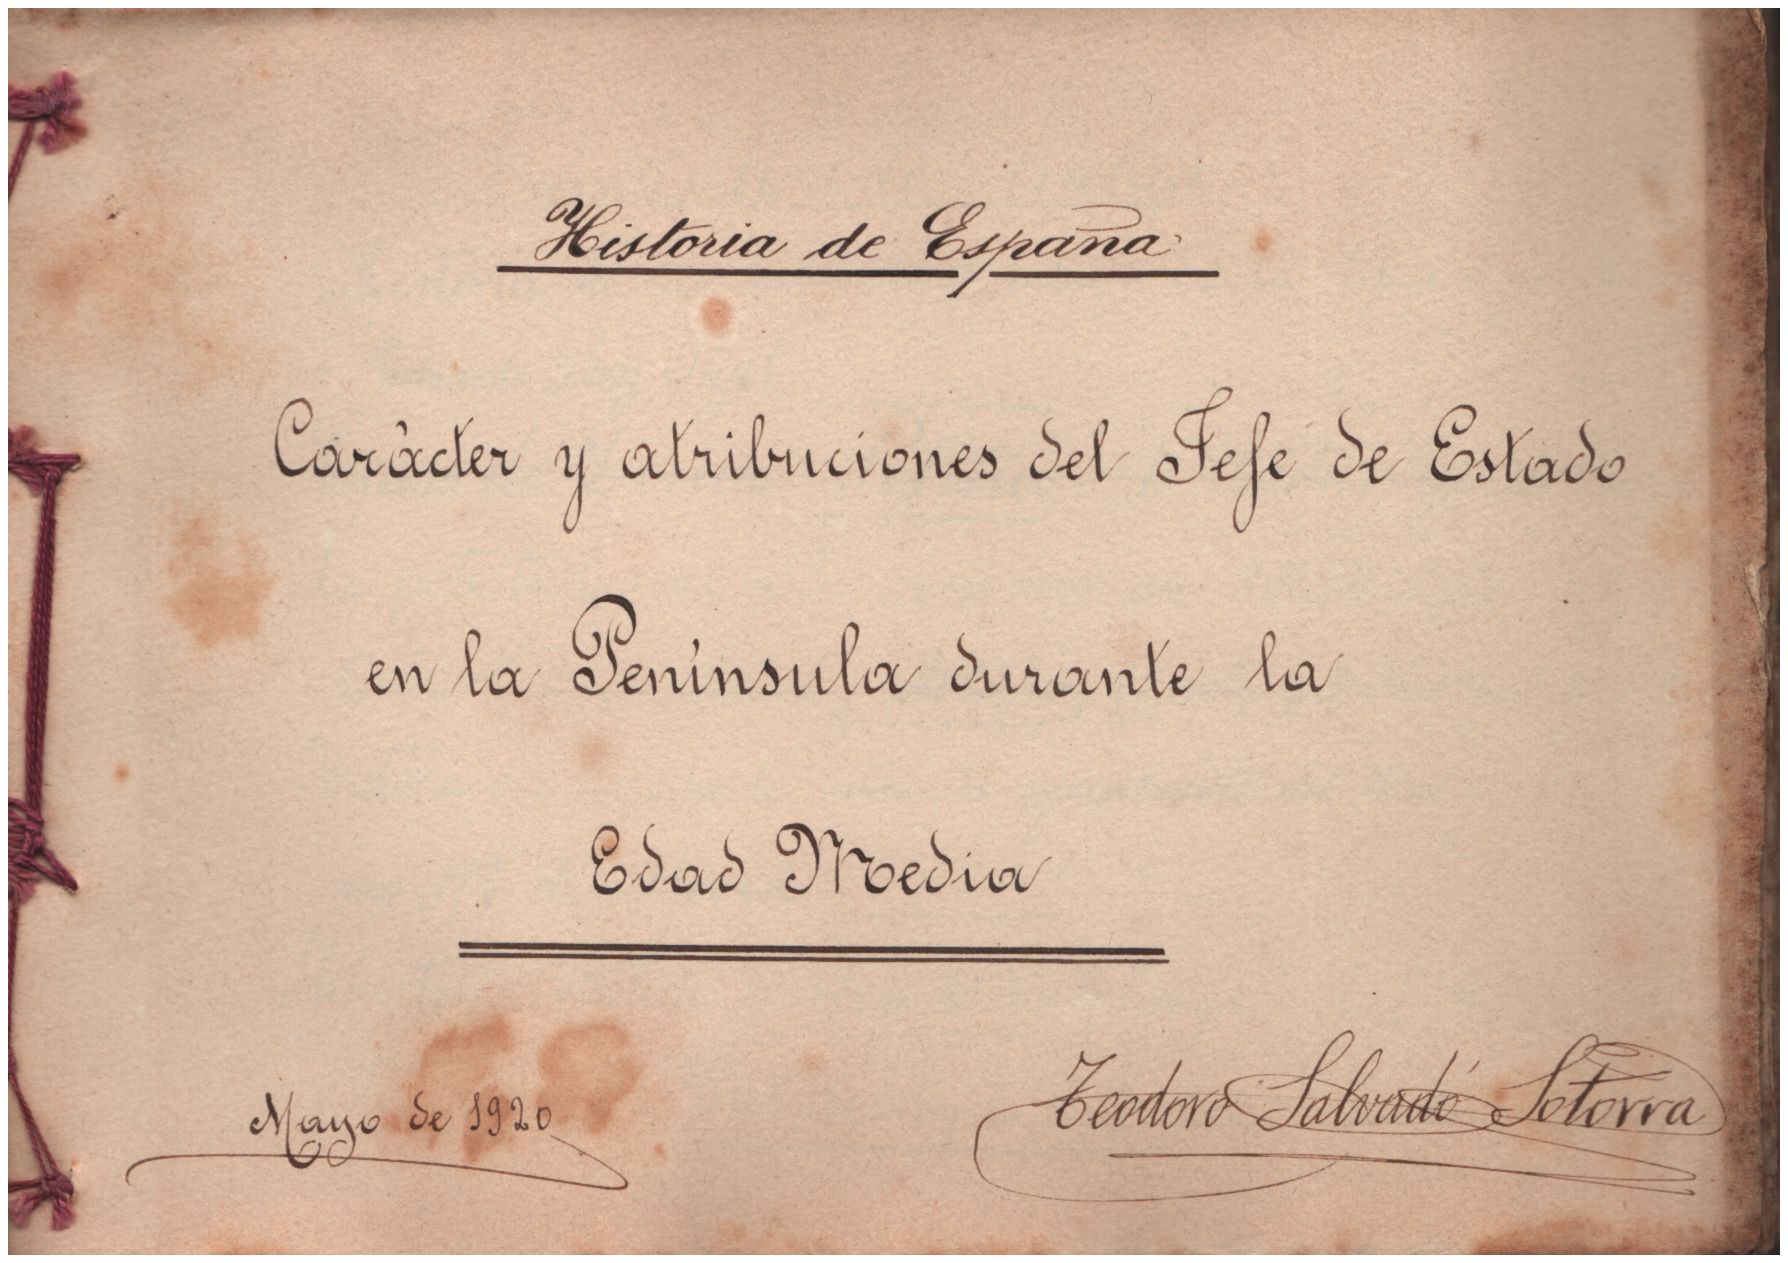 Historia de España
Carácter y atribuciones del Jefe de Estado
en la Península durante la
Edad Media
Mayo de 1920
Teodoro Salvadó Sotorra